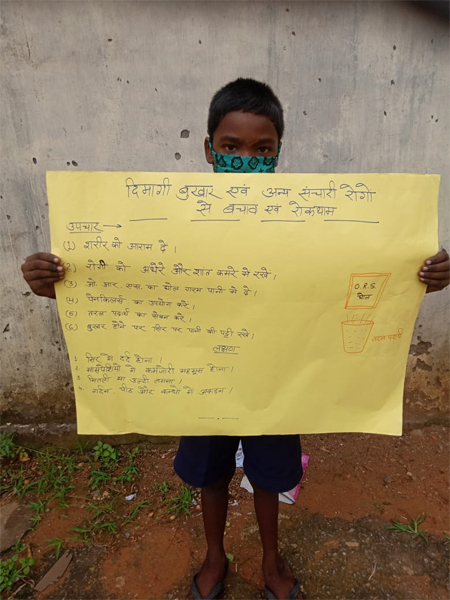 दिमागी बुखार एवं अन्य संचारी रोगो
से बचाव एवं रोकथाम
उपचार →
(1) शरीर को आराम दें ।
(2) रोगी को अंधेरे और शांत कमरे में रखें ।
(3) ओ. आर. एस. का घोल गरम पानी में दें ।
(4) पेनकिलर्स का उपयोग करें ।
(5) तरल पदार्थ का सेवन करें ।
(6) बुखार होने पर सिर पर पानी की पट्टी रखें ।
O.R.S.
घोल
तरल पदार्थ
लक्षण
1. सिर में दर्द होना ।
2. मांसपेशियों में कमजोरी महसूस होना ।
3. मितली या उल्टी लगना ।
4. गर्दन, पीठ और कन्धों में अकड़न ।